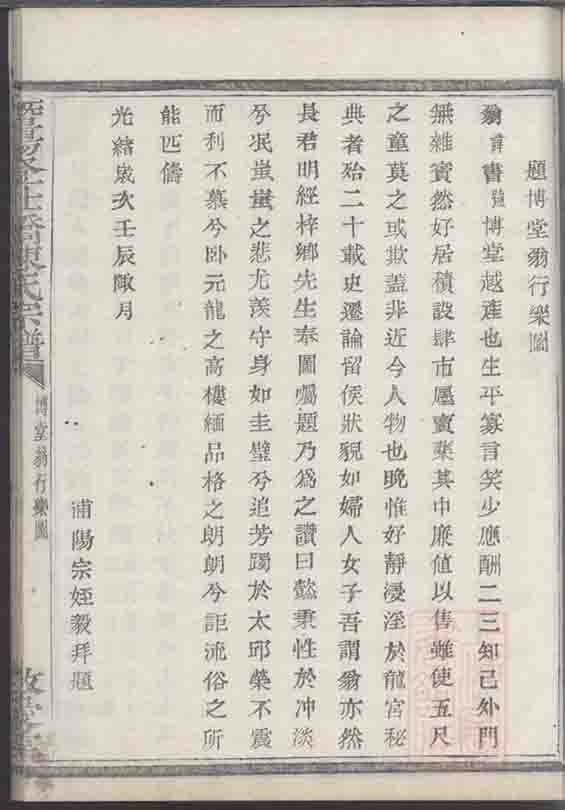 題博堂翁行樂圖
翁諱書號博堂越產也生平寡言笑少應酬二三知己外門
無雜賓然好居積設肆市廛賣藥其中廉值以售雖使五尺
之童莫之或欺葢非近今人物也晚惟好靜浸淫於龍宮秘
典者殆二十載史遷論留侯狀貌如婦人女子吾謂翁亦然
長君明經梓鄉先生奉圖囑題乃爲之讚曰懿秉性於冲淡
兮泯蚩蚩之悲尤羨守身如圭璧兮追芳躅於太邱榮不震
而利不慕兮卧元龍之高樓緬品格之朗朗兮詎流俗之所
能匹儔
光緒歲次壬辰陬月
浦陽宗姪毅拜題
陳氏宗譜
博堂翁行樂圖